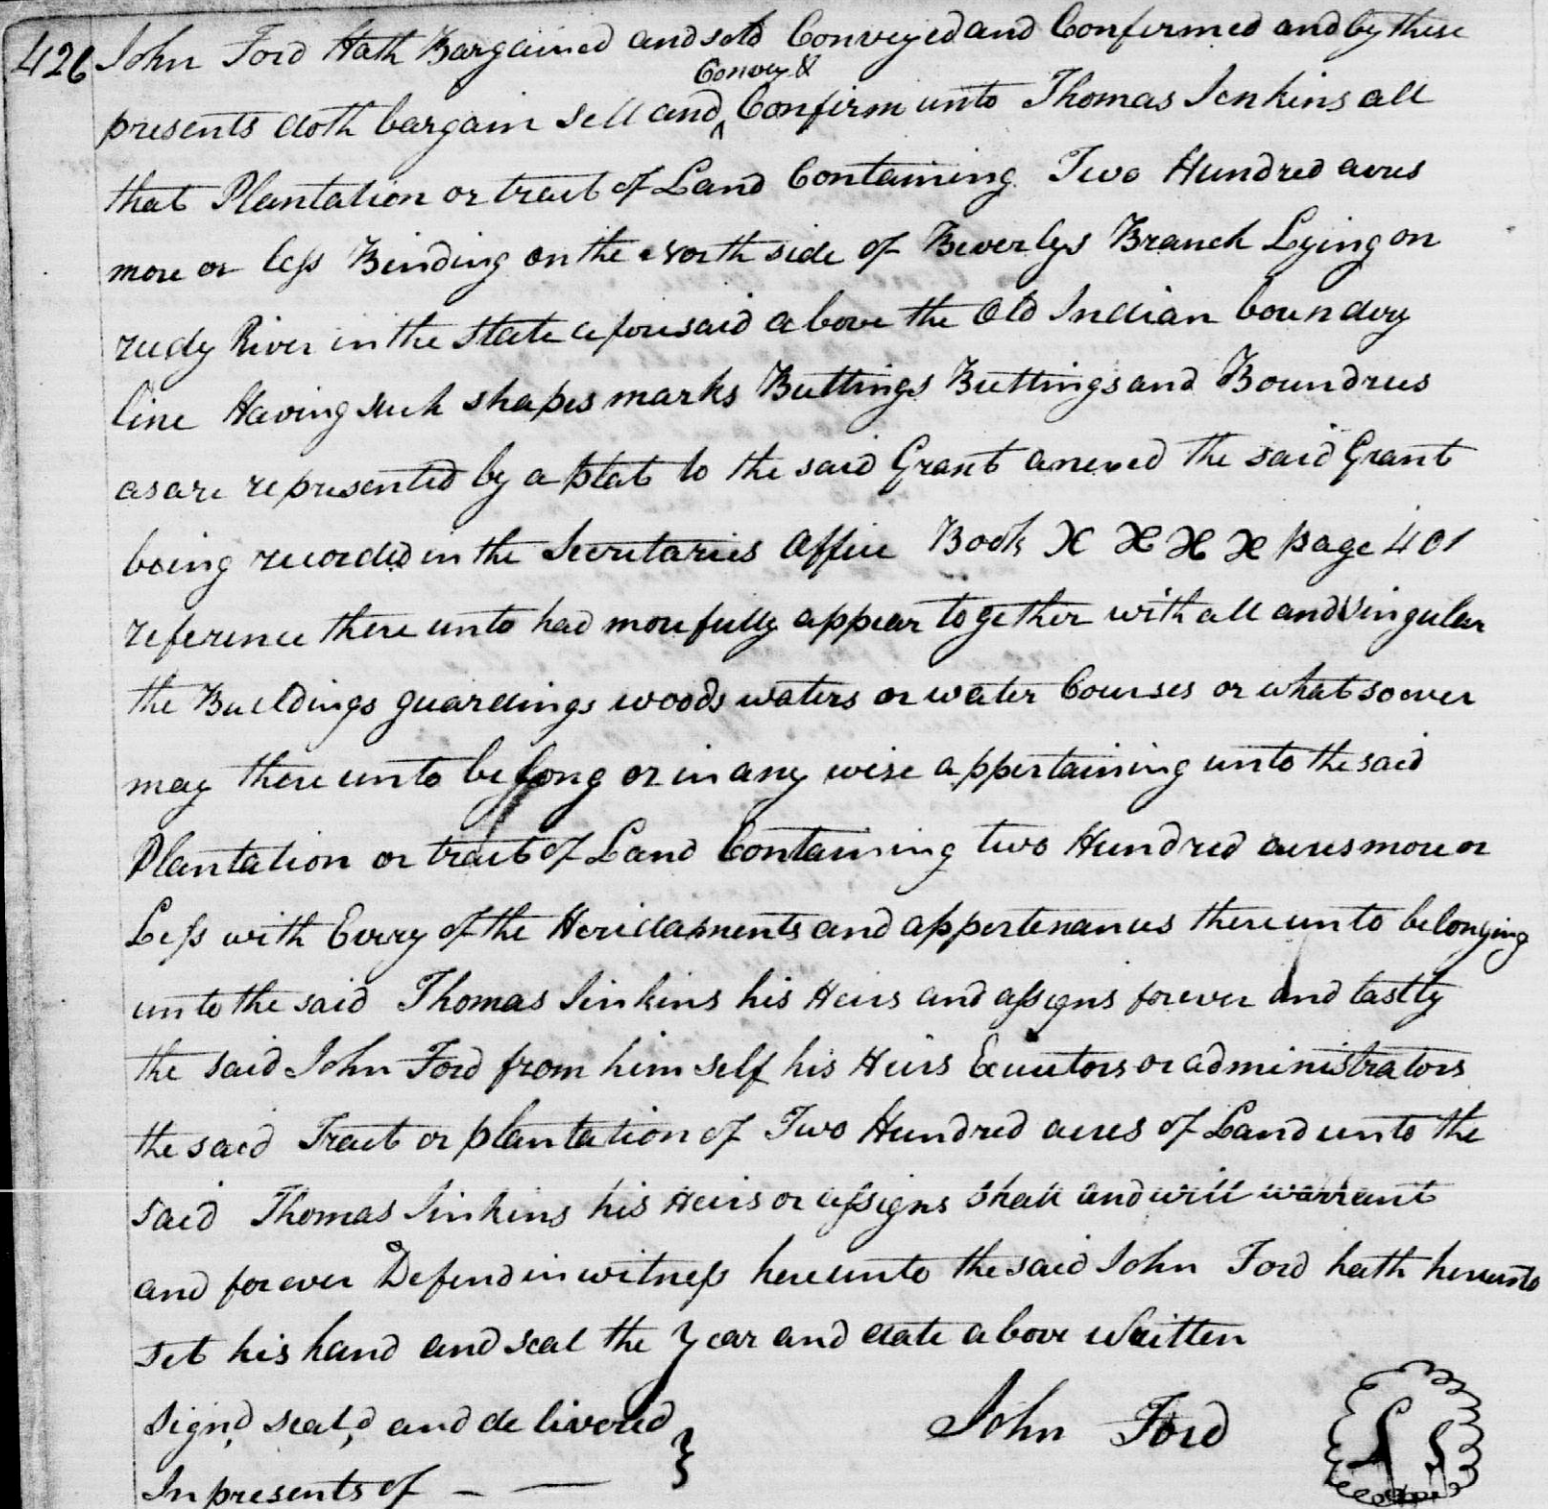 426 John Ford Hath Bargained and sold Conveyed and Confirmed and by these
Convey &
presents doth bargain sell and ^ Confirm unto Thomas Jenkins all
that Plantation or tract of Land Containing Two Hundred acres
more or less Binding on the North side of Beverlys Branch Lying on
reedy River in the State aforesaid above the Old Indian boundery
line Having such shapes marks Buttings Buttings and Boundrees
as are represented by a plat to the said Grant anexed the said Grant
being recorded in the Secretaries Office Book X X X X page 401
reference there unto had more fully appear together with all and Singular
the Buildings guardings woods waters or water Courses or what soever
may there unto belong or in any wise appertaining unto the said
Plantation or tract of Land Containing two Hundred acres more or
Less with Every of the Heridaments and appertenances there unto belonging
unto the said Thomas Jinkins his Heirs and assigns forever And lastly
the said John Ford from him self his Heirs Executors or administrators
the said Tract or plantation of Two Hundred acres of Land unto the
said Thomas Jinkins his Heirs or assigns Shall and will warrant
and forever Defend in witness hereunto the said John Ford hath hereunto
set his hand and seal the year and date above Written
Sign,d seal,d and delivered }
John Ford L S
In presents of — —